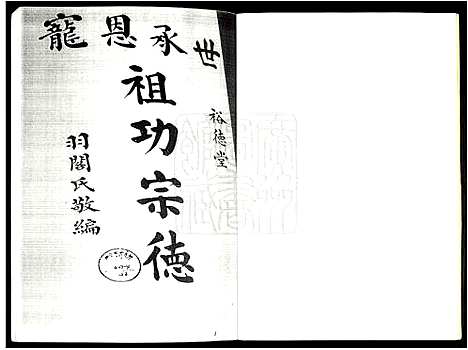 世承恩寵
裕德堂
祖功宗德
羽閣氏敬編